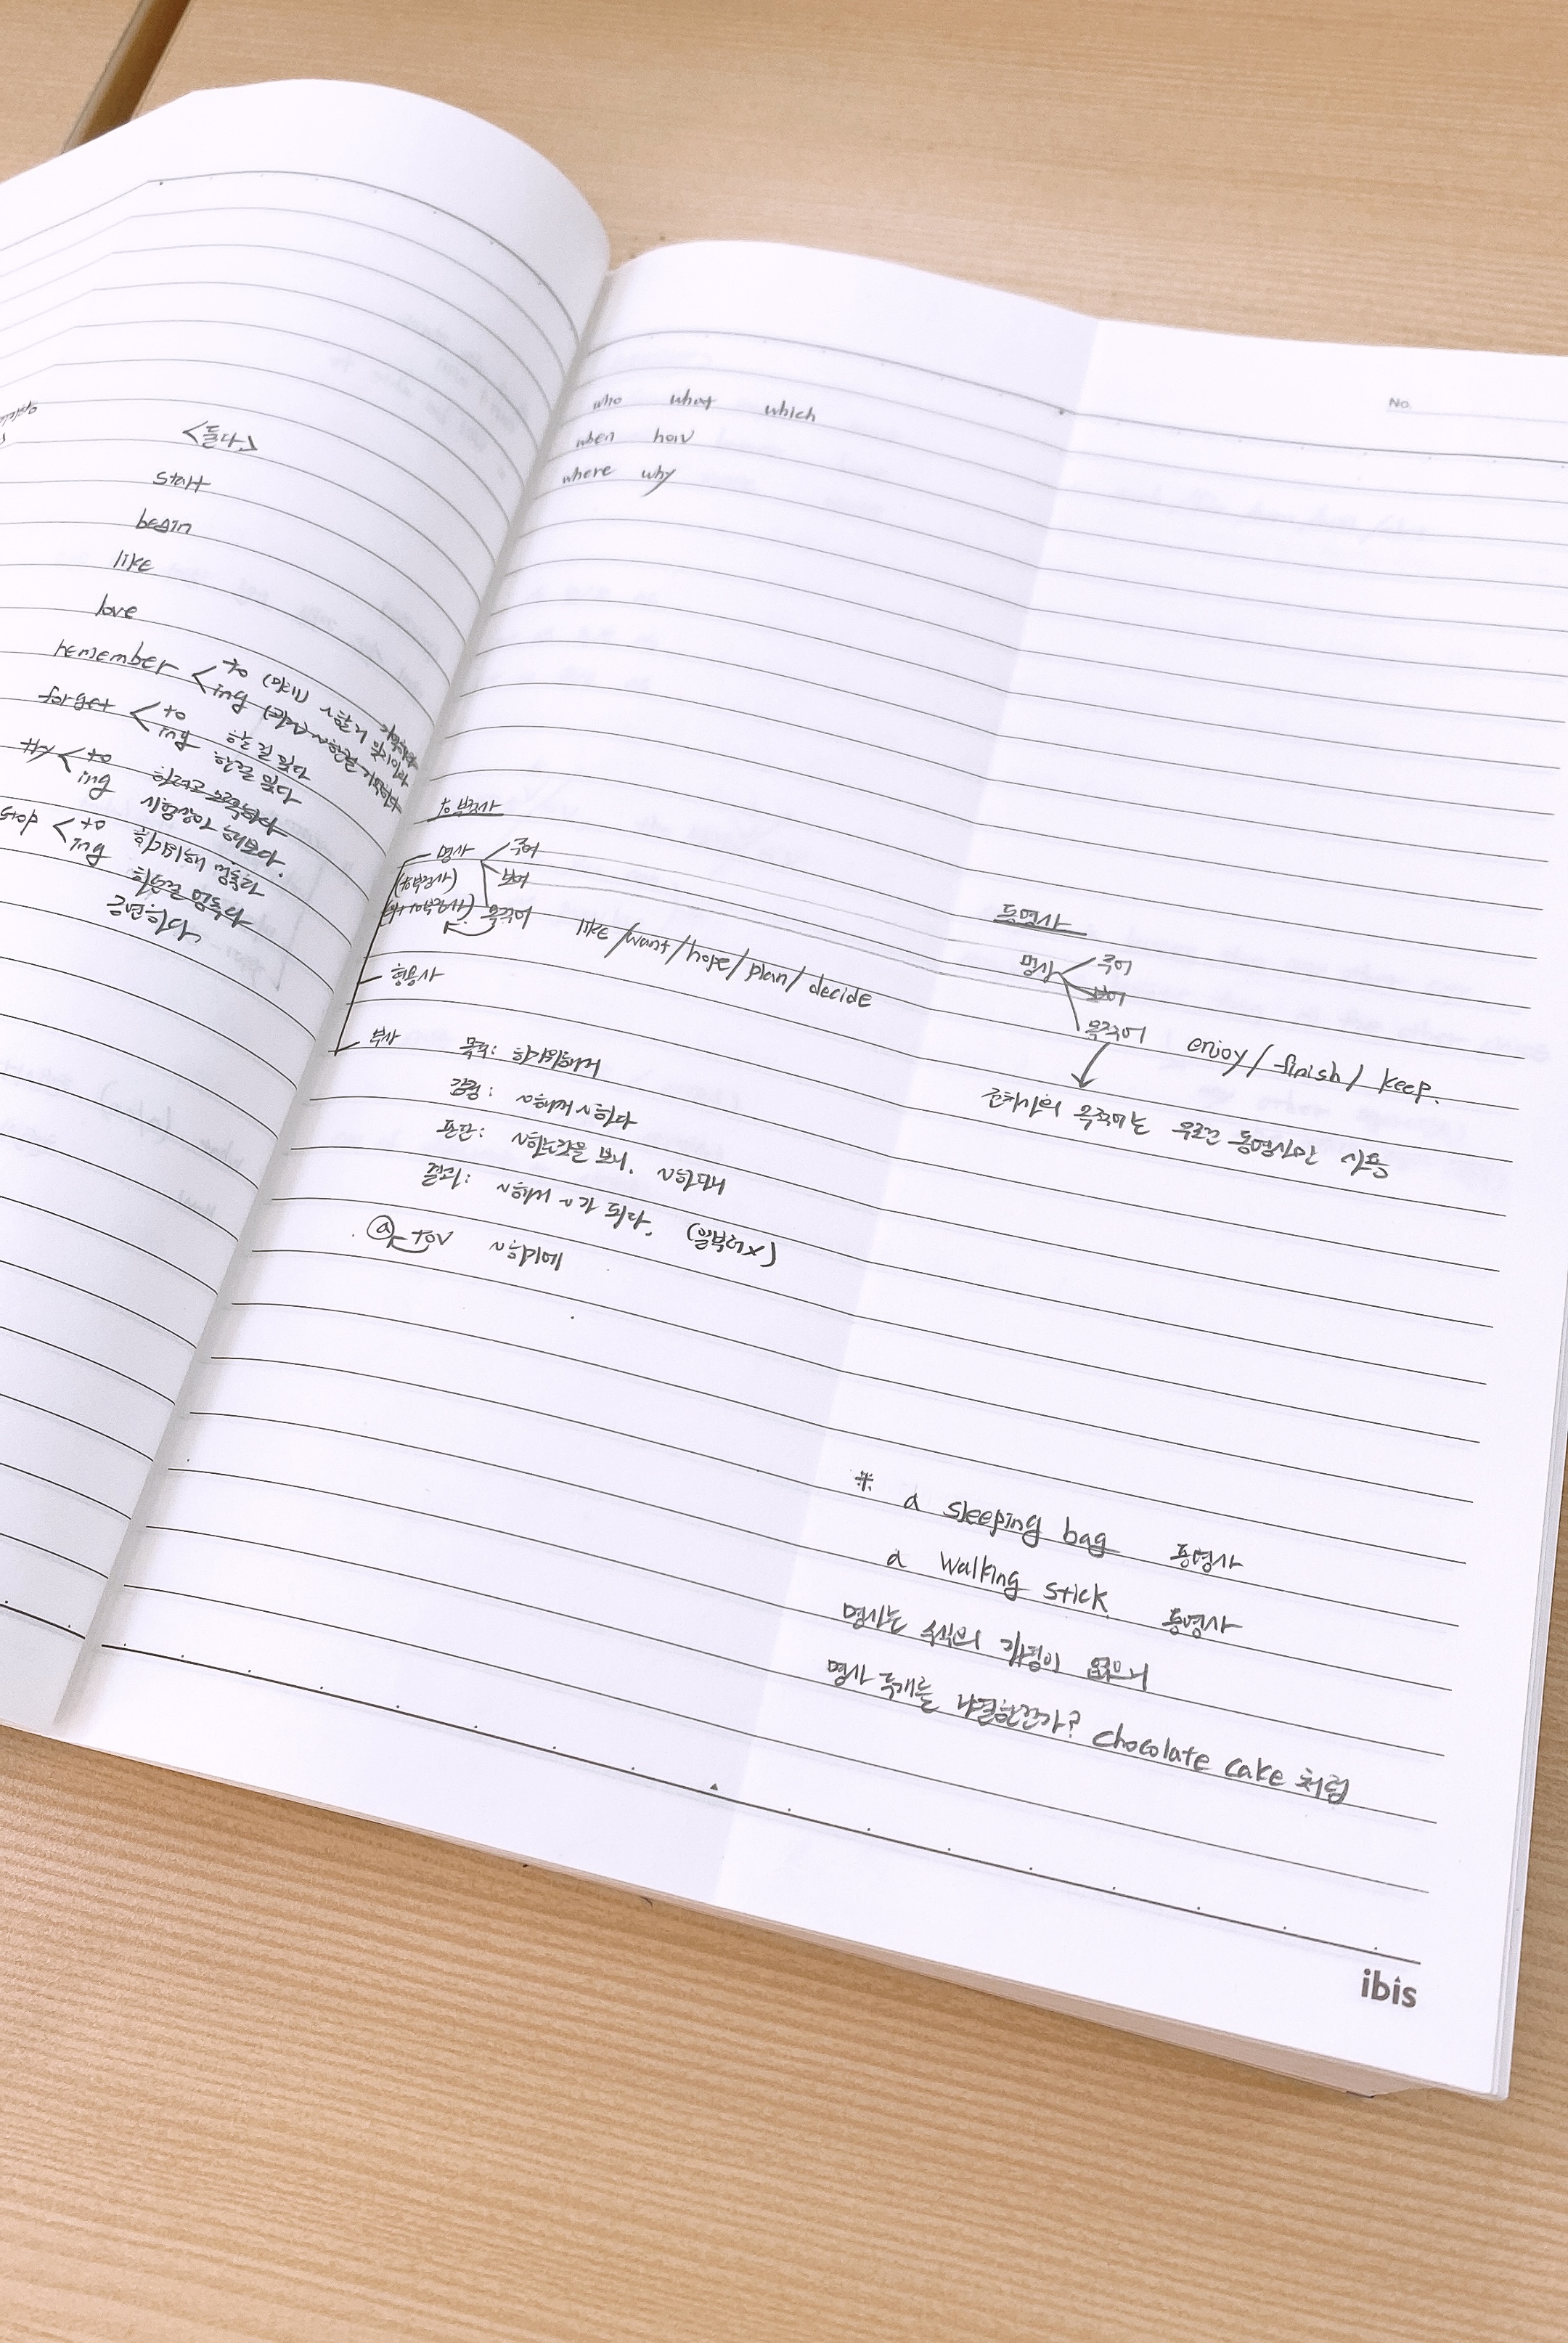 <둘다>
start
begin
like
love
remember < to (미래)
ing
forget < to 할 걸 잊다
ing 한걸 잊다
try < to 하려고 노력하다
ing 시험삼아 해보다.
stop < to 하기위해 멈추다
ing 하는걸 멈추다
금연하다
who what which
when how
where why
to 부정사
명사 주어
(to부정사) 보어
목적어 like / want / hope / plan / decide
형용사
부사 목적: 하기위해서
감정: ~해서 ~하다
판단: ~하는것을 보니, ~하다니
결과: ~해서 ~가 되다. (일부러x)
ⓐ toV ~하기에
No.
동명사
명사 주어
보어
목적어 enjoy / finish / keep.
전치사의 목적어는 무조건 동명사만 사용
* a sleeping bag 동명사
a walking stick 동명사
명사는 수식의 개념이 없으니
명사 두개를 나열한건가? chocolate cake 처럼
ibis